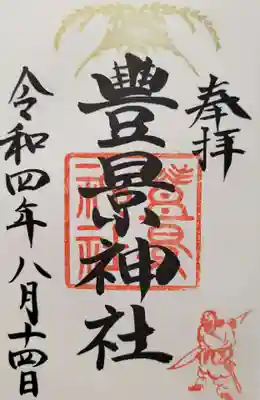 奉拝
豊景神社
令和四年八月十四日
豊景
神社